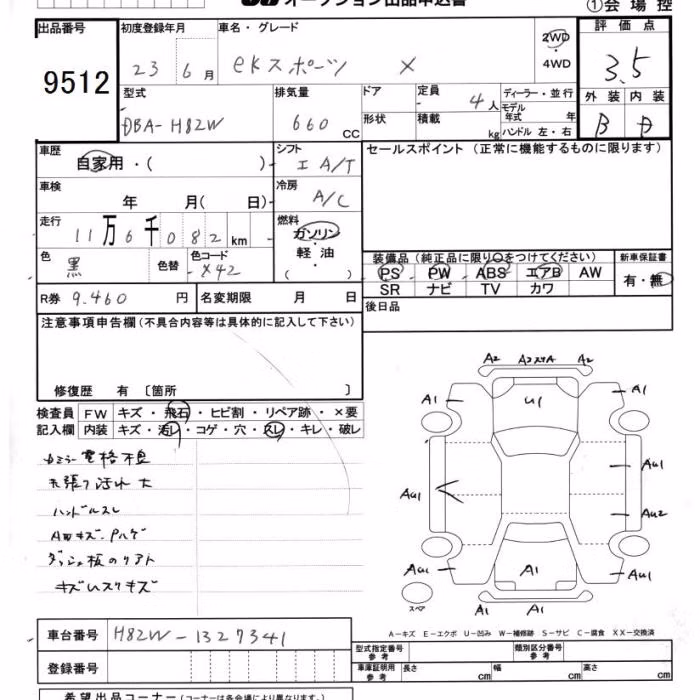 オークション出品申込書
①会場控
出品番号 9512
初度登録年月 23 6月
車名・グレード ekスポーツ X
2WD ・ 4WD
評価点 3.5
外装 B 内装 D
型式 DBA-H82W
排気量 660 CC
ドア 形状
定員 4人
積載 kg
ディーラー・並行
モデル年式 年
ハンドル 左・右
車歴 自家用・( )
シフト I A/T
セールスポイント (正常に機能するものに限ります)
車検 年 月( 日)
冷房 A/C
走行 11万6千082km
燃料 ガソリン・軽油・( )
色 黒 色替 色コード X42
装備品 (純正品に限り○をつけてください)
PS PW ABS エアB AW
SR ナビ TV カワ
新車保証書 有・無
R券 9.460円
名変期限 月 日
後日品
注意事項申告欄 (不具合内容等は具体的に記入して下さい)
修復歴 有 〔箇所 〕
検査員記入欄
FW キズ・飛石・ヒビ割・リペア跡・×要
内装 キズ・汚れ・コゲ・穴・スレ・キレ・破レ
カミラー電格不良
天張り汚れ大
ハンドルスレ
A皿キズ・Pハゲ
ダッシュ板のリアト
キズ
A2 A2 A2
A1 U1 A1
AU1
AU1 AU2
AU1 A1 AU1
A1 A1
スペア
A-キズ E-エクボ U-凹み W-補修跡 S-サビ C-腐食 XX-交換済
車台番号 H82W-1327341
登録番号
型式指定番号 参考
類別区分番号 参考
車庫証明用 参考 長さ cm 幅 cm 高さ cm
希望出品コーナー (コーナーは各会場により異なります。)